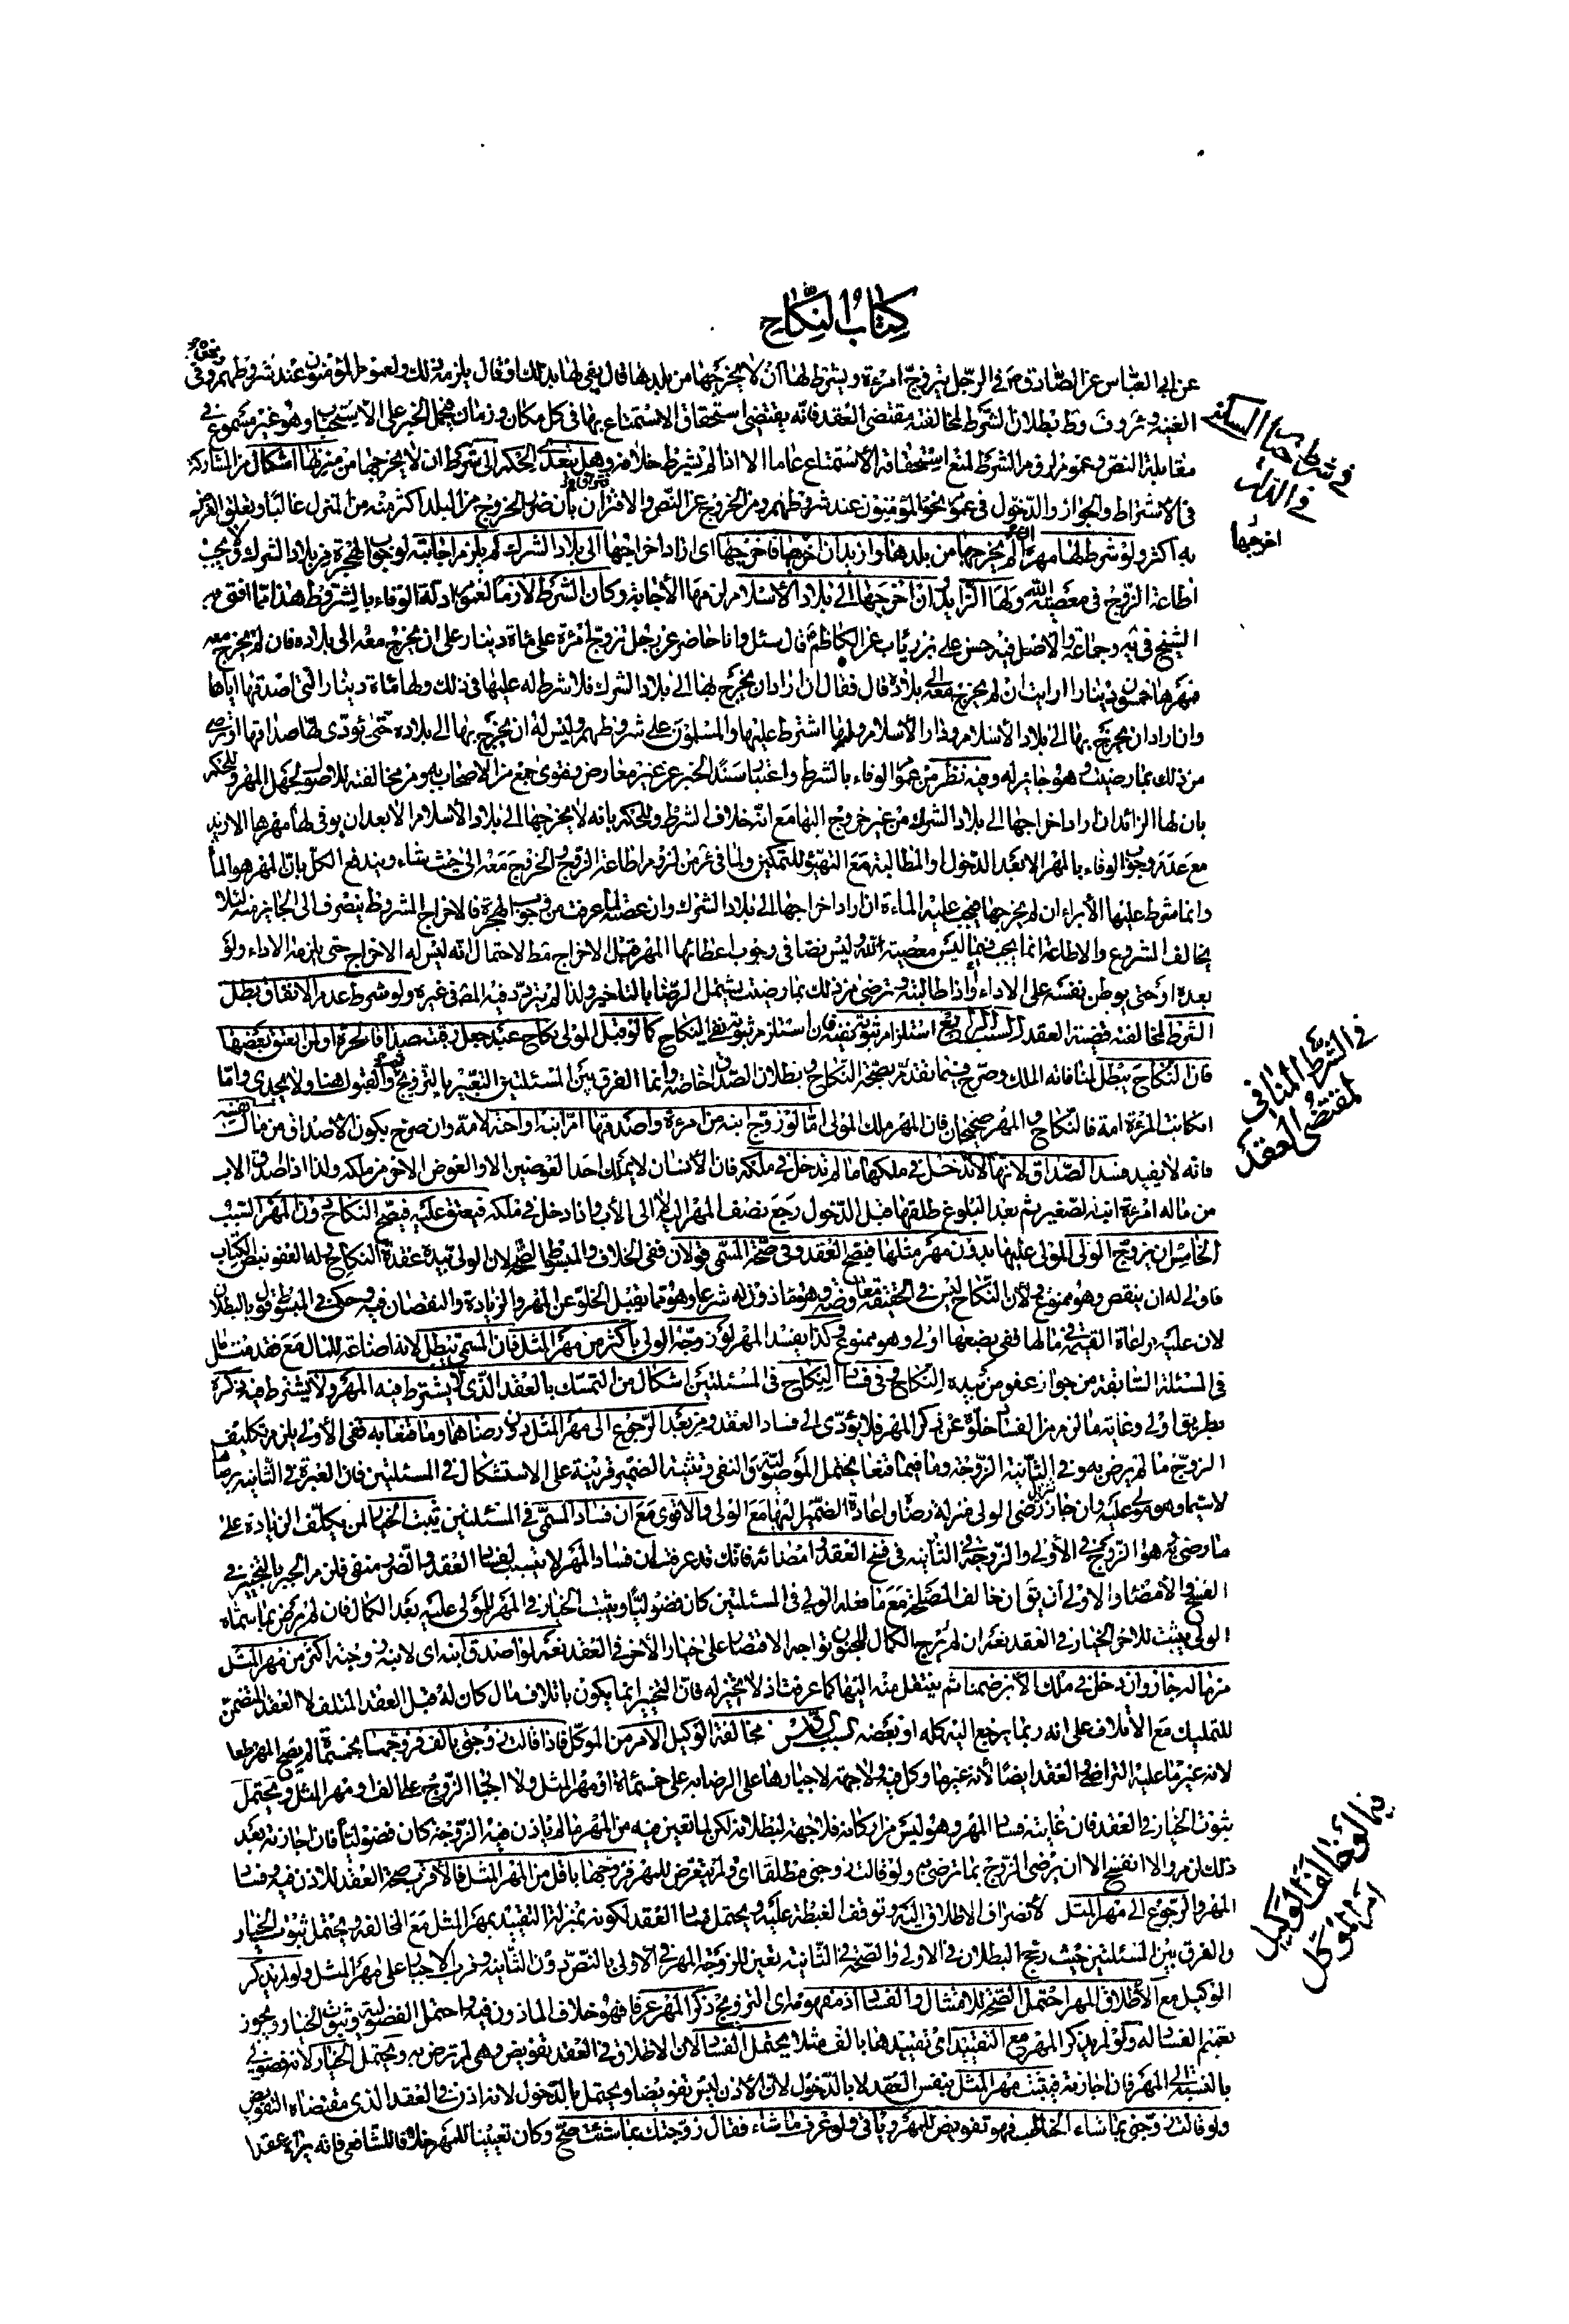 كتاب النكاح
عن ابي العباس عن الصادق ع في الرجل يتزوج امرءة ويشترط لها ان لا يخرجها من بلدها قال يفي لها بذلك او قال يلزمه ذلك ولعموم المؤمنون عند شروطهم وفي
الغنية وئر وف وط بطلان الشرط لمخالفته مقتضى العقد فانه يقتضي استحقاق الاستمتاع بها في كل مكان وزمان فيحمل الخبر على الاستحباب وهو غير مسموع في
مقابلة النص وعموم لزوم الشرط لمنع استحقاقه الاستمتاع عاما الا اذا لم يشترط خلافه وهل يتعدى الحكم الى شرط ان لا يخرجها من منزلها اشكال من المشاركة
في الاشتراط والجواز والدخول في عموم نحو المؤمنون عند شروطهم ومن الخروج عن النص والافتراق بان ضرر الخروج من البلد اكثر منه من المنزل غالبا وتعلق الغرض
به اكثر ولو شرط لها مهرا ان لم يخرجها من بلدها وازيد ان اخرجها فاخرجها اى اراد اخراجها الى بلاد الشرك لم يلزم اجابته لوجوب الهجرة من بلاد الشرك ولا يجب
اطاعة الزوج في معصية الله ولها الزايد وان اخرجها الى بلاد الاسلام لزمها الاجابة وكان الشرط لازما لعموم ادلة الوفاء بالشروط هذا مما افتى به
الشيخ في ية وجماعة والاصل فيه حسن علي بن رئاب عن الكاظم ع قال سئل وانا حاضر عن رجل تزوج امرئة على مائة دينار على ان يخرج معه الى بلاده فان لم يخرج معه
مهرها خمسون دينارا ارايت ان لم يخرج معه الى بلاده قال فقال ان اراد ان يخرج بها الى بلاد الشرك فلا شرط له عليها في ذلك ولها مائة دينار التي اصدقها اياها
وان اراد ان يخرج بها الى بلاد الاسلام ودار الاسلام فله ما اشترط عليها والمسلمون على شروطهم وليس له ان يخرج بها الى بلاده حتى يؤدي لها صداقها او ترضى
من ذلك بما رضيت وهو جايز له وفيه نظر من عموم الوفاء بالشرط واعتبار سند الخبر عن غير معارض وفتوى جمع من الاصحاب به ومن مخالفته للاصول لجهل المهر وللحكم
بان لها الزائد ان اراد اخراجها الى بلاد الشرك من غير خروج اليها مع انه خلاف الشرط وللحكم بانه لا يخرجها الى بلاد الاسلام الا بعد ان يوفي لها مهرها الازيد
مع عدم وجوب الوفاء بالمهر الا بعد الدخول او المطالبة مع التهيؤ للتمكين ولمنافرته من لزوم اطاعة الزوج والخروج معه الى حيث شاء ويندفع الكل بان المهر هو المأة
وانما شرط عليها الابراء ان لم يخرجها فيجب عليه المأة ان اراد اخراجها الى بلاد الشرك وان عصته لما عرفت من وجوب الهجرة فالاخراج المشروط ينصرف الى الجايز منه لئلا
يخالف المشروع والاطاعة انما يجب فيما ليس معصية لله وليس نصا في وجوب اعطائها المهر قبل الاخراج فقط لاحتمال انه ليس له الاخراج حتى يلزمه الاداء ولو
بعده او حتى يوطن نفسه على الاداء واذا طالبته وترضى من ذلك بما رضيت يشتمل الرضا بالتاخير ولذا لم يتردد فيه المص في غيره ولو شرط عدم الانفاق بطل
الشرط لمخالفته قضية العقد السبب الرابع استلزام ثبوته نفيه فان استلزم ثبوته نفي النكاح كما لو قبل المولى نكاح عبد جعل رقبته صداقا لحرة او لمن انعتق بعضها
فان النكاح يبطل لمنافاته الملك وصرح فيما تقدم بصحة النكاح وبطلان الصداق خاصة وانما الفرق بين المسئلتين التعبير بالتزويج ثم والقبول هنا ولا يجدي واما
ان كانت المرئة امة فالنكاح والمهر صحيحان فان المهر ملك المولى اما لو زوج ابنه من امرءة واصدقها ام ابنه او اخته لامه وان صرح بكون الاصداق من مال نفسه
فانه لا يفيد فسد الصداق لانها لا تدخل في ملكها ما لم تدخل في ملكه فان الانسان لا يملك احد العوضين الا والعوض الاخر من ملكه ولذا اذا اصدق الاب
من ماله امرءة ابنه الصغير ثم بعد البلوغ طلقها قبل الدخول رجع نصف المهر اليه لا الى الاب واذا دخل في ملكه فيعتق عليه فيصح النكاح دون المهر السبب
الخامس ان يزوج الولى المولى عليها بدون مهر مثلها فيصح العقد وفي صحة المسمى قولان ففي الخلاف والمبسوط الصحة لان الولى بيده عقدة النكاح وله العفو بنص الكتاب
فاولى له ان ينقص وهو ممنوع ولان النكاح ليس في الحقيقة معاوضة وهو ماذون له شرعا وهو مما يقبل الخلو عن المهر والزيادة والنقصان فيه وحكى في المبسوط قول بالبطلان
لان عليه مراعاة القيمة في مالها ففي بضعها اولى وهو ممنوع وكذا يفسد المهر لو زوجه الولى باكثر من مهر المثل فان المسمى يبطل لانه اضاعة للمال مع فقد مثل ما
في المسئلة السابقة من جواز عفو من بيده النكاح وفي فساد النكاح في المسئلتين اشكال من التمسك بالعقد الذي لا يشترط فيه المهر ولا يشترط فيه ذكره
بطريق اولى وغايته ما لزم من الفساد خلوه عن ذكر المهر فلا يؤدي الى فساد العقد ومن بعد الرجوع الى مهر المثل دون رضاهما وما قنعا به ففي الاولى يلزم تكليف
الزوج ما لم يرض به وفي الثانية الزوجة وما فيما قنعا يحتمل الموصولية والنفي وتثنية الضمير قرينة على الاستشكال في المسئلتين فان العبرة في الثانية برضاها
لا سيما وهو مولى عليه وان جاز تنزيل رضى الولى منزلة رضاه واعادة الضمير اليها مع الولى والاقوى مع ان فساد المسمى في المسئلتين ثبت الخيار لمن يكلف الزيادة على
ما رضي به هو الزوج في الاولى والزوجة في الثانية في فسخ العقد وامضائه فانك قد عرفت ان فساد المهر لا يسبب لفساد العقد والضرر منفى فلزم الجبر بالتخيير في
الفسخ والامضاء والاولى ان يق ان خالف المصلحة مع ما فعله الولى في المسئلتين كان فضوليا ويثبت الخيار في المهر للمولى عليه بعد الكمال فان لم يرض بما سماه
الولى يثبت للاخر الخيار في العقد نعم ان لم يرج الكمال للجنون تواجه الاقتصار على خيار الاخر في العقد نعم لو اصدق ابنه اى لابنه زوجته اكثر من مهر المثل
من ماله جاز وان دخل في ملك الابن ضمنا ثم ينتقل منه اليها كما عرفت اذ لا تخيير له فان التخيير انما يكون باتلاف مال كان له قبل العقد المتلف لا العقد المتضمن
للتمليك مع الاتلاف على انه ربما يرجع اليه كله او بعضه السبب السادس مخالفة الوكيل الامر من الموكل فاذا قالت زوجني بالف فزوجها بخمسمائة لم يصح المهر قطعا
لانه غير ما عليه التراضي ولا العقد ايضا لانه غير ما وكل فيه ولا جهة لاجبارها على الرضا به على خمسمائة او مهر المثل ولا اجبار الزوج على الف او مهر المثل ويحتمل
ثبوت الخيار في العقد فان غايته فساد المهر وهو ليس من اركانه فلا جهة لبطلانه لكن لما تعين فيه من المهر ما لم ياذن فيه الزوجة كان فضوليا فان اجازته بعد
ذلك لزم والا انفسخ الا ان يرضى الزوج بما ترضى به ولو قالت زوجني مطلقا اى ولم يتعرض للمهر فزوجها باقل من المهر المثل فالاقرب صحة العقد للاذن فيه وفساد
المهر والرجوع الى مهر المثل لانصراف الاطلاق اليه وتوقف الغبطة عليه ويحتمل فساد العقد لكونه بمنزلة التقييد بمهر المثل مع المخالفة ويحتمل ثبوت الخيار
والفرق بين المسئلتين حيث رجح البطلان في الاولى والصحة في الثانية تعين للزوجة المهر في الاولى بالنص دون الثانية وقرب الاجبار على مهر المثل ولو لم يذكر
الوكيل مع الاطلاق المهر احتمل الصحة للامتثال والفساد اذ مفهومه اى التزويج ذكر المهر عرفا فهو خلاف الماذون فيه واحتمل الفضولية وثبوت الخيار ويجوز
تعميم الفساد له ولو لم يذكر المهر مع التقييد اى تقييدها بالف مثلا يحتمل الفساد لان الاطلاق في العقد تفويض وهي لم ترض به ويحتمل الخيار لانه فضولي
بالنسبة الى المهر فان اجازته فيثبت مهر المثل بنفس العقد لا بالدخول لان الاذن ليس تفويضا ويحتمل بالدخول لانه اذن في العقد الذي مقتضاه التفويض
ولو قالت زوجني بما شاء الخاطب فهو تفويض للمهر وياتي ولو عرف ما شاء فقال زوجتك بما شئت صح وكان تعيينا للمهر خلافا للشافعي فانه يراه عقدا
في الشرط المنافي
لمقتضى العقد
فيما لو خالف الوكيل
امر الموكل